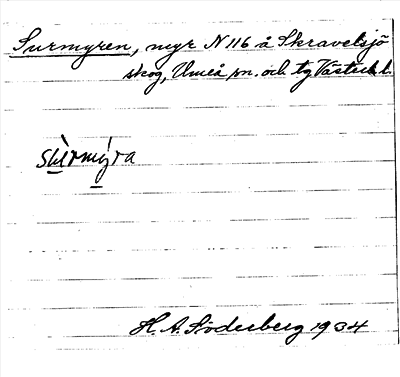 Surmyren, myr N 116 å Skravelsjö
skog, Umeå sn. och tg Västerb. l.
sùrmýra
H. A. Söderberg 1934